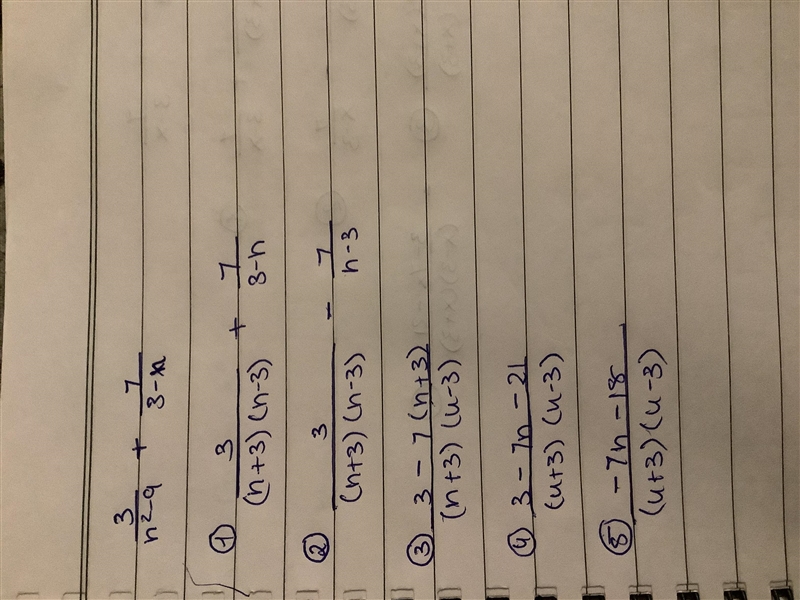 3/n²-9 + 7/3-n
① 3/(n+3)(n-3) + 7/3-n
② 3/(n+3)(n-3) - 7/n-3
③ 3-7(n+3)/(n+3)(n-3)
④ 3-7n-21/(n+3)(n-3)
⑤ -7n-18/(n+3)(n-3)